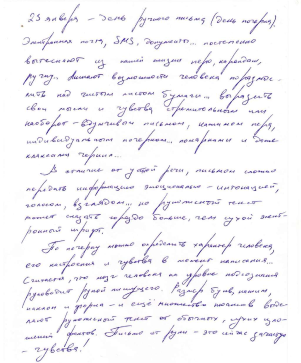 23 января – день ручного письма (день почерка).
Электронная почта, SMS, документы... постепенно
вытесняют из нашей жизни перо, карандаш,
ручку... лишают возможности человека поразмыс-
лить над чистым листом бумаги... выразить
свои мысли и чувства стремительным или
наоборот – вдумчивым письмом, нажимом пера,
индивидуальным почерком... помарками и даже
кляксами чернил...
В отличие от устной речи, письмом сложно
передать информацию эмоционально – интонацией,
голосом, взглядом... но рукописный текст
может сказать гораздо больше, чем сухой элект-
ронный шрифт.
По почерку можно определить характер человека,
его настроение и чувства в момент написания...
Считается, что мозг человека на уровне подсознания
руководит рукой пишущего. Размер букв, нажим,
наклон и форма – и ещё множество нюансов
рукописный текст от обычного,
фактов. Письмо от руки – это
– чувства!